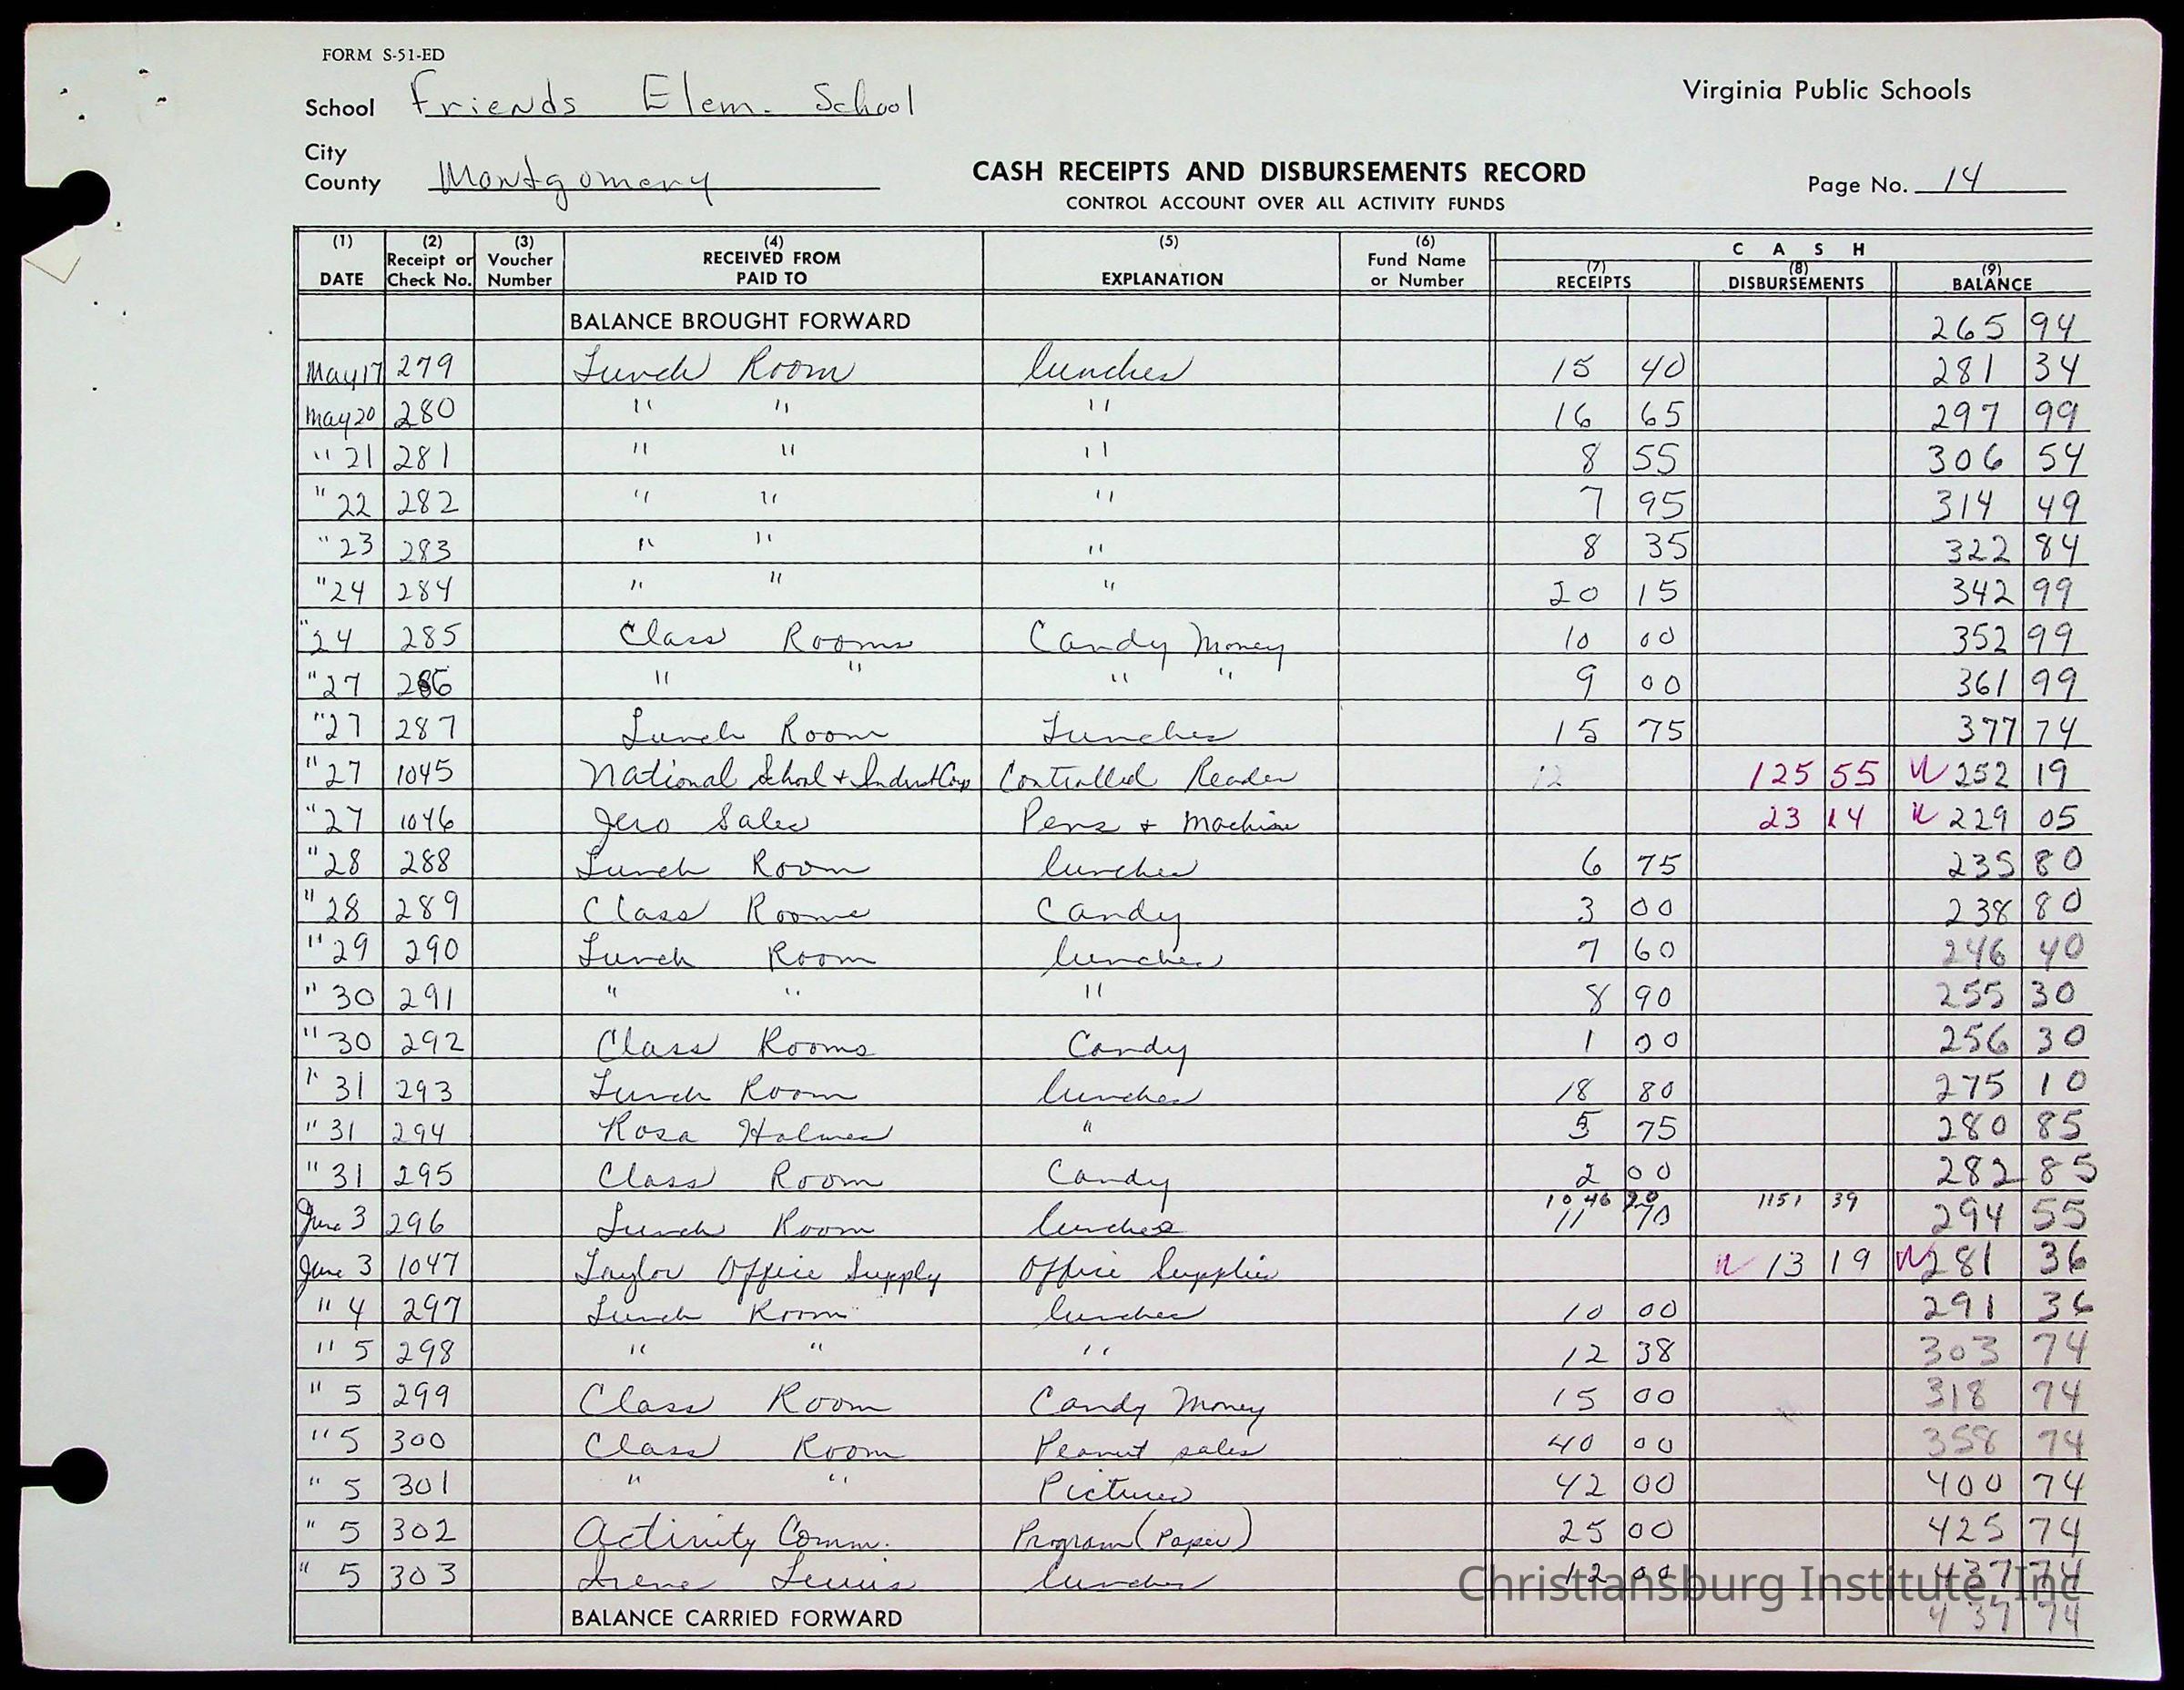 FORM S-51-ED
School Friends Elem. School
Virginia Public Schools
City
County Montgomery
CASH RECEIPTS AND DISBURSEMENTS RECORD
CONTROL ACCOUNT OVER ALL ACTIVITY FUNDS
Page No. 14
(1) DATE (2) Receipt or Check No. (3) Voucher Number (4) RECEIVED FROM PAID TO (5) EXPLANATION (6) Fund Name or Number CASH (7) RECEIPTS (8) DISBURSEMENTS (9) BALANCE
BALANCE BROUGHT FORWARD 265 94
May 17 279 Lunch Room lunches 15 40 281 34
May 20 280 " " " 16 65 297 99
" 21 281 " " " 8 55 306 54
" 22 282 " " " 7 95 314 49
" 23 283 " " " 8 35 322 84
" 24 284 " " " 20 15 342 99
" 24 285 Class Rooms Candy Money 10 00 352 99
" 27 286 " " " " 9 00 361 99
" 27 287 Lunch Room Lunches 15 75 377 74
" 27 1045 National School + Indust Corp Controlled Reader 12 125 55 252 19
" 27 1046 Jero Sales Pens + Machine 23 14 229 05
" 28 288 Lunch Room lunches 6 75 235 80
" 28 289 Class Rooms Candy 3 00 238 80
" 29 290 Lunch Room lunches 7 60 246 40
" 30 291 " " " 8 90 255 30
" 30 292 Class Rooms Candy 1 00 256 30
" 31 293 Lunch Room lunches 18 80 275 10
" 31 294 Rosa Holmes " 5 75 280 85
" 31 295 Class Room Candy 2 00 282 85
1046 20 1151 39
June 3 296 Lunch Room lunches 11 70 294 55
June 3 1047 Taylor Office Supply Office Supplies 13 19 281 36
" 4 297 Lunch Room lunches 10 00 291 36
" 5 298 " " " 12 38 303 74
" 5 299 Class Room Candy Money 15 00 318 74
" 5 300 Class Room Peanut sales 40 00 358 74
" 5 301 " " Pictures 42 00 400 74
" 5 302 Activity Comm. Program (Paper) 25 00 425 74
" 5 303 Irene Lewis lunches 12 00 437 74
Christiansburg Institute, Inc
BALANCE CARRIED FORWARD 437 74